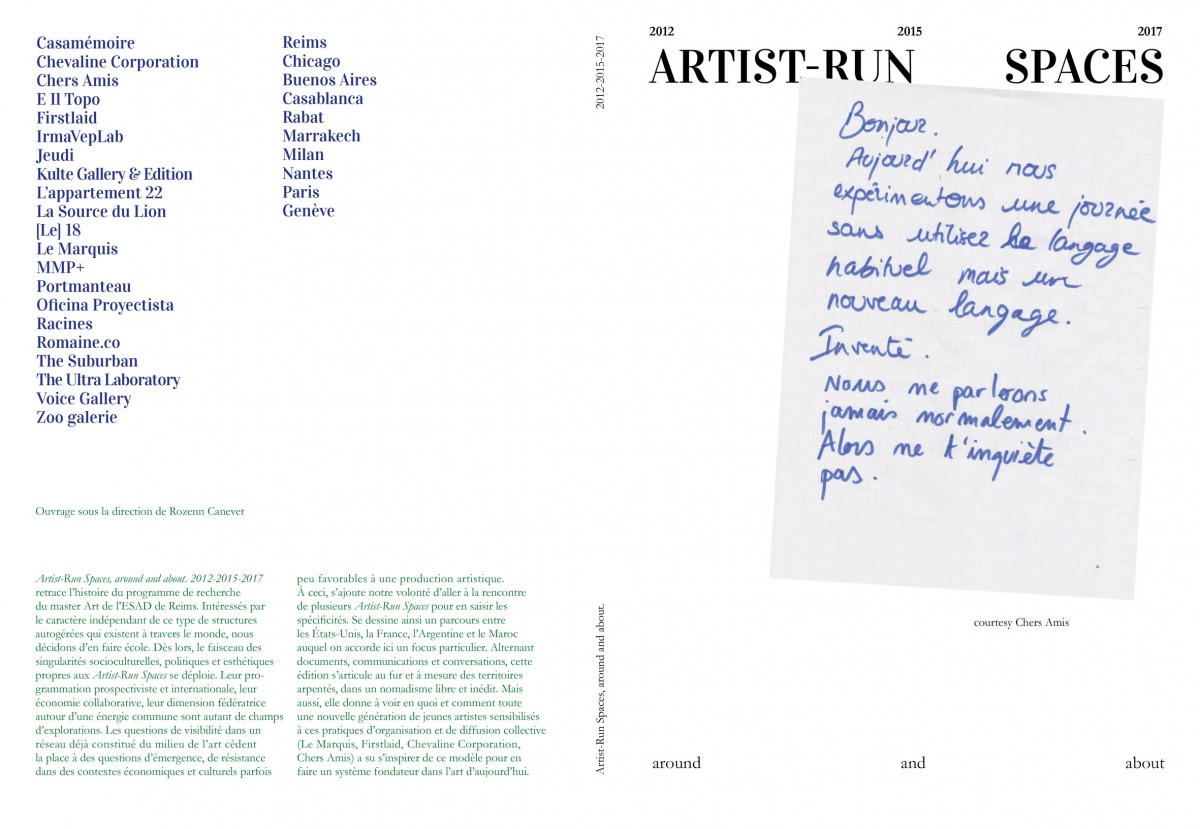 Casamémoire
Chevaline Corporation
Chers Amis
E Il Topo
Firstlaid
IrmaVepLab
Jeudi
Kulte Gallery & Edition
L’appartement 22
La Source du Lion
[Le] 18
Le Marquis
MMP+
Portmanteau
Oficina Proyectista
Racines
Romaine.co
The Suburban
The Ultra Laboratory
Voice Gallery
Zoo galerie
Reims
Chicago
Buenos Aires
Casablanca
Rabat
Marrakech
Milan
Nantes
Paris
Genève
Ouvrage sous la direction de Rozenn Canevet
Artist-Run Spaces, around and about. 2012-2015-2017
retrace l’histoire du programme de recherche
du master Art de l’ESAD de Reims. Intéressés par
le caractère indépendant de ce type de structures
autogérées qui existent à travers le monde, nous
décidons d’en faire école. Dès lors, le faisceau des
singularités socioculturelles, politiques et esthétiques
propres aux Artist-Run Spaces se déploie. Leur pro-
grammation prospectiviste et internationale, leur
économie collaborative, leur dimension fédératrice
autour d’une énergie commune sont autant de champs
d’explorations. Les questions de visibilité dans un
réseau déjà constitué du milieu de l’art cèdent
la place à des questions d’émergence, de résistance
dans des contextes économiques et culturels parfois
peu favorables à une production artistique.
À ceci, s’ajoute notre volonté d’aller à la rencontre
de plusieurs Artist-Run Spaces pour en saisir les
spécificités. Se dessine ainsi un parcours entre
les États-Unis, la France, l’Argentine et le Maroc
auquel on accorde ici un focus particulier. Alternant
documents, communications et conversations, cette
édition s’articule au fur et à mesure des territoires
arpentés, dans un nomadisme libre et inédit. Mais
aussi, elle donne à voir en quoi et comment toute
une nouvelle génération de jeunes artistes sensibilisés
à ces pratiques d’organisation et de diffusion collective
(Le Marquis, Firstlaid, Chevaline Corporation,
Chers Amis) a su s’inspirer de ce modèle pour en
faire un système fondateur dans l’art d’aujourd’hui.
2012-2015-2017
Artist-Run Spaces, around and about.
2012 2015 2017
ARTIST-RUN SPACES
Bonjour.
Aujourd'hui nous
expérimentons une journée
sans utiliser le langage
habituel mais un
nouveau langage.
Inventé.
Nous ne parlerons
jamais normalement.
Alors ne t'inquiète
pas.
courtesy Chers Amis
around and about